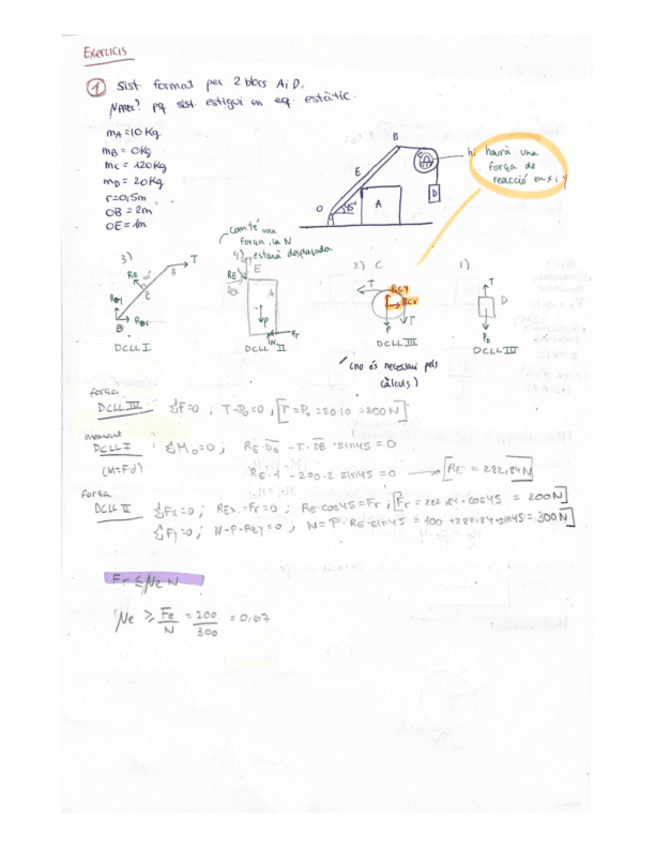 Exercicis
1 Sist. format per 2 blocs A i D.
pq sist. estigui en eq. estàtic.
mA = 10 Kg
mB = 0 Kg
mC = 120 Kg
mD = 20 Kg
r = 0,5m
OB = 2m
OE = 1m
B
E
O
45°
A
D
hi haurà una
força de
reacció en x i y
com té una
força, la N
estarà desplaçada
3)
4)
2) C
1)
T
RE
B
E
DCLL I
RE
E
A
P
N
Fr
DCLL II
T
RCY
RCX
P
T
DCLL III
T
D
PD
DCLL IV
(no és necessari pels
càlculs)
força
DCLL IV ΣF=0 ; T-PD=0 ; [T = PD = 20·10 = 200N]
moment
DCLL I ΣMO=0 ; - T· DB · sin45 = 0
(M=F·d) RE · 1 - 200 · 2 sin45 = 0 → [RE = 282,84N]
força
DCLL II ΣFx=0 ; REx - Fr = 0 ; RE·cos45 = Fr ; [Fr = 282,84 · cos45 = 200N]
ΣFy=0 ; N-P-REy=0 ; N = P + RE·sin45 = 100 + 282,84·sin45 = 300N]
Fr ≤ μe N
μe ≥ Fe/N = 200/300 = 0,67